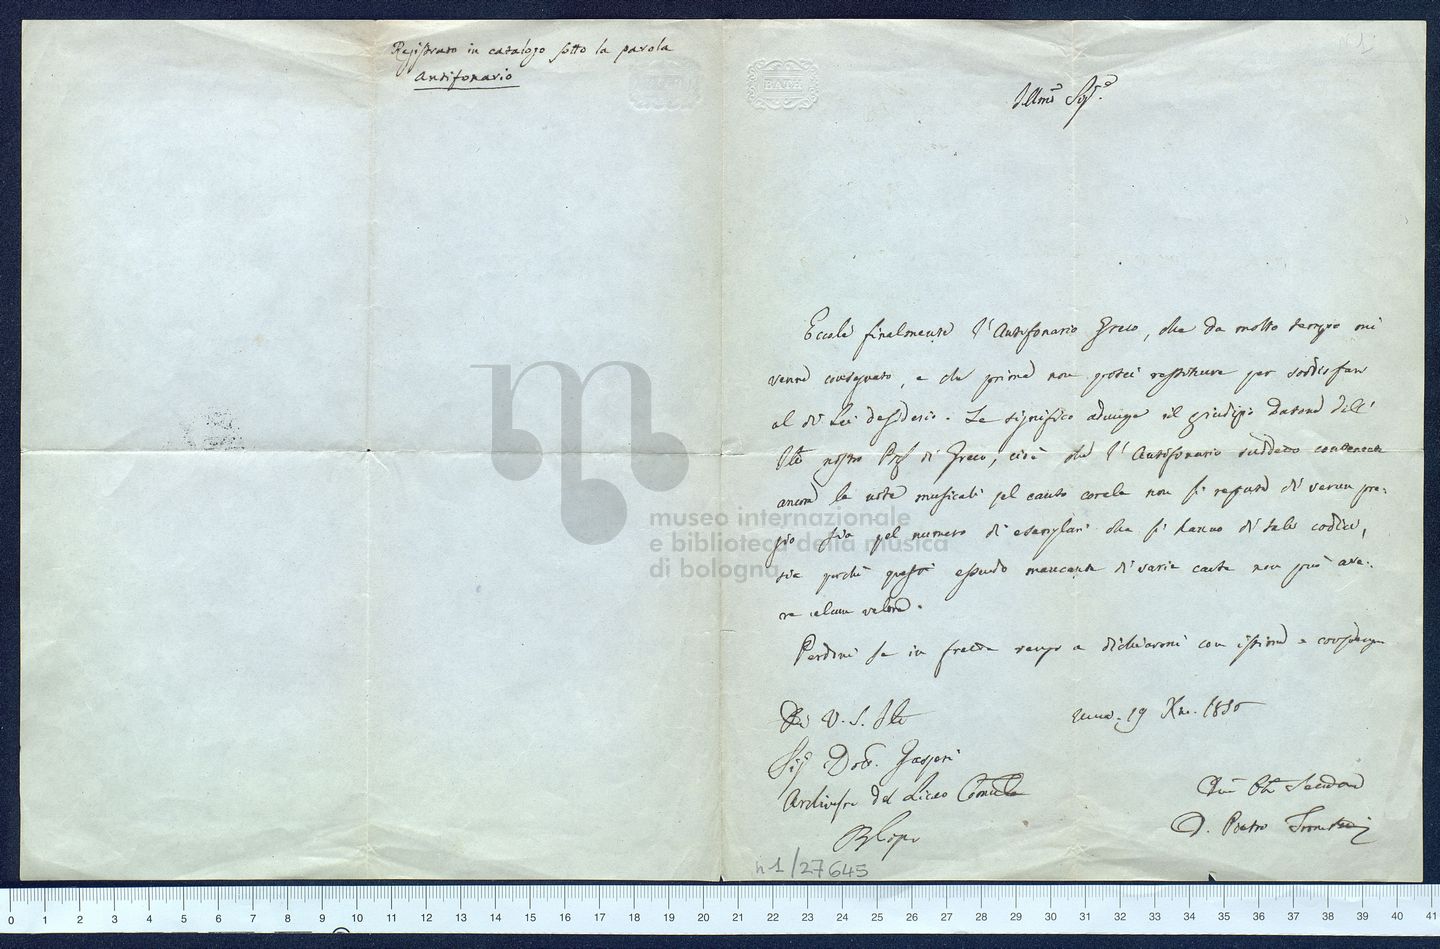 Registrato in catalogo sotto la parola
Antifonario
BATH
BATH
Illmo Sigr.
Eccole finalmente l'Antifonario Greco, che da molto tempo mi
venne consegnato, e che prima non potei restituire per soddisfare
al di Lei desiderio. Le significo adunque il giudizio datone dall'
nostro Prof di Greco, cioè che l'Antifonario suddetto contenente
ancora le note musicali pel canto corale non si reputa di verun pre-
gio sia pel numero di esemplari che si hanno di tali codici,
sia perchè questo essendo mancante di varie carte non può ave-
re alcun valore.
Perdoni se in fretta vengo a dichiararmi con istima e
Di V. S. Illma
19 Xbre 1856
Sigr Dott. Gaspari
Archivista del Liceo Comunale
Bologna
Servitore
D. Pietro
n 1/27645
museo internazionale
e biblioteca della musica
di bologna
0 1 2 3 4 5 6 7 8 9 10 11 12 13 14 15 16 17 18 19 20 21 22 23 24 25 26 27 28 29 30 31 32 33 34 35 36 37 38 39 40 41